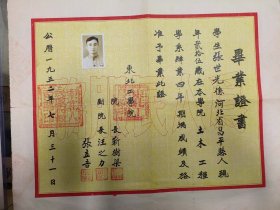 畢業證書
學生張世光係河北省昌平縣人現
年貳拾伍歲在本學院土木工程
學系修業四年期滿成績及格
准予畢業此證
東北工學院
院長靳樹梁
副院長汪之力
張立吾
公曆一九五二年七月三十一日